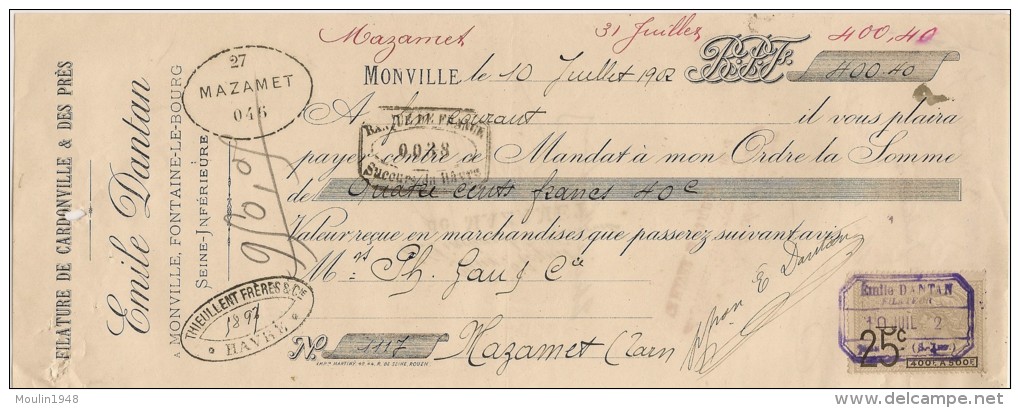 Mazamet 31 Juillet 400,40
MONVILLE, le 10 Juillet 1902 B.P.F. 400.40
A fin courant il vous plaira
payer contre ce Mandat à mon Ordre la Somme
de Quatre cents francs 40c
Valeur reçue en marchandises que passerez suivant avis
Mrs Ph. Gau & Cie
No 1117 Mazamet (Tarn)
E Dantan
FILATURE DE CARDONVILLE & DES PRÈS
Emile Dantan
A MONVILLE, FONTAINE-LE-BOURG
SEINE-INFÉRIEURE
27
MAZAMET
046
BANQUE DE FRANCE
0038
Succursale du Hâvre
THIEULLENT FRÈRES & Cie
1897
HAVRE
Emile DANTAN
FILATEUR
10 JUIL 2
(S.-Inf.)
25c
400F A 500F
Moulin1948
delcampe.net